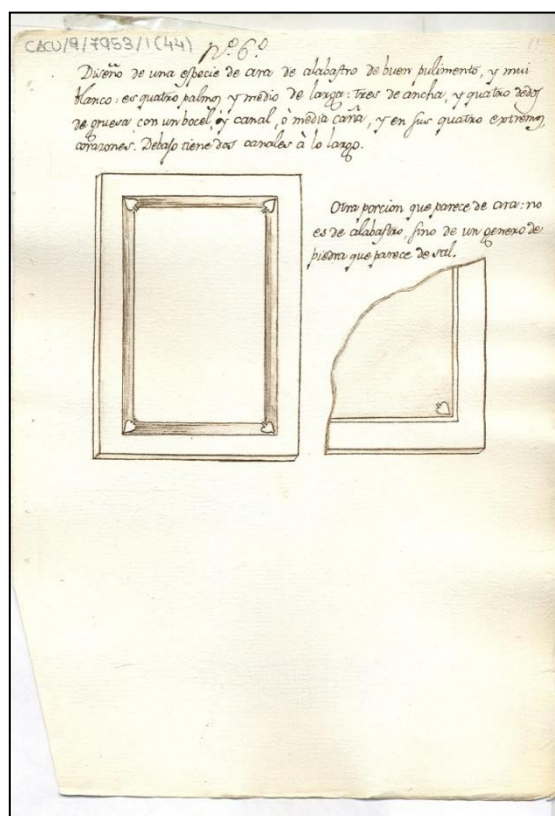 CACU/9/7953/1(44)
Nº. 6º.
Diseño de una especie de ara de alabastro de buen pulimento, y mui
blanco: es quatro palmos y medio de larga: tres de ancha, y quatro dedos
de gruesa con un bocel, y canal, ò media caña, y en sus quatro extremos
corazones. Debajo tiene dos canales à lo largo.
Otra porcion que parece de ara: no
es de alabastro, sino de un genero de
piedra que parece de sal.